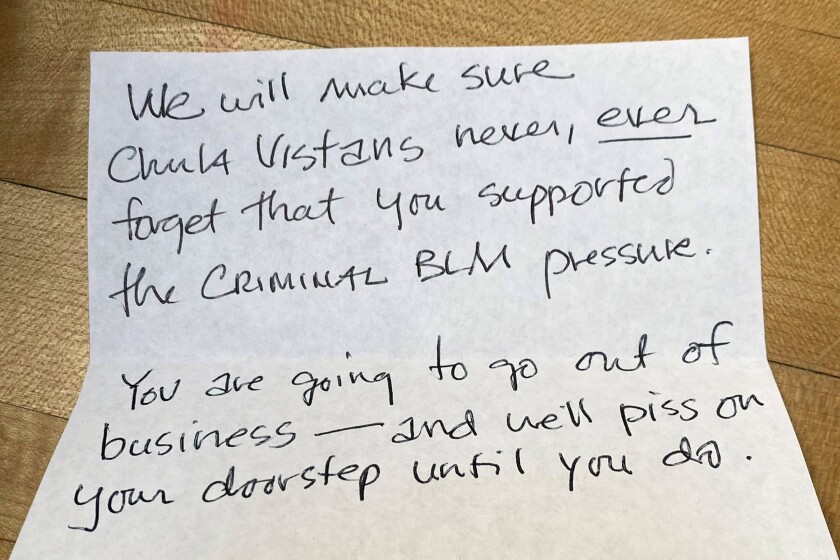 We will make sure
Chula Vistans never, ever
forget that you supported
the CRIMINAL BLM pressure.
You are going to go out of
business — and we'll piss on
your doorstep until you do.